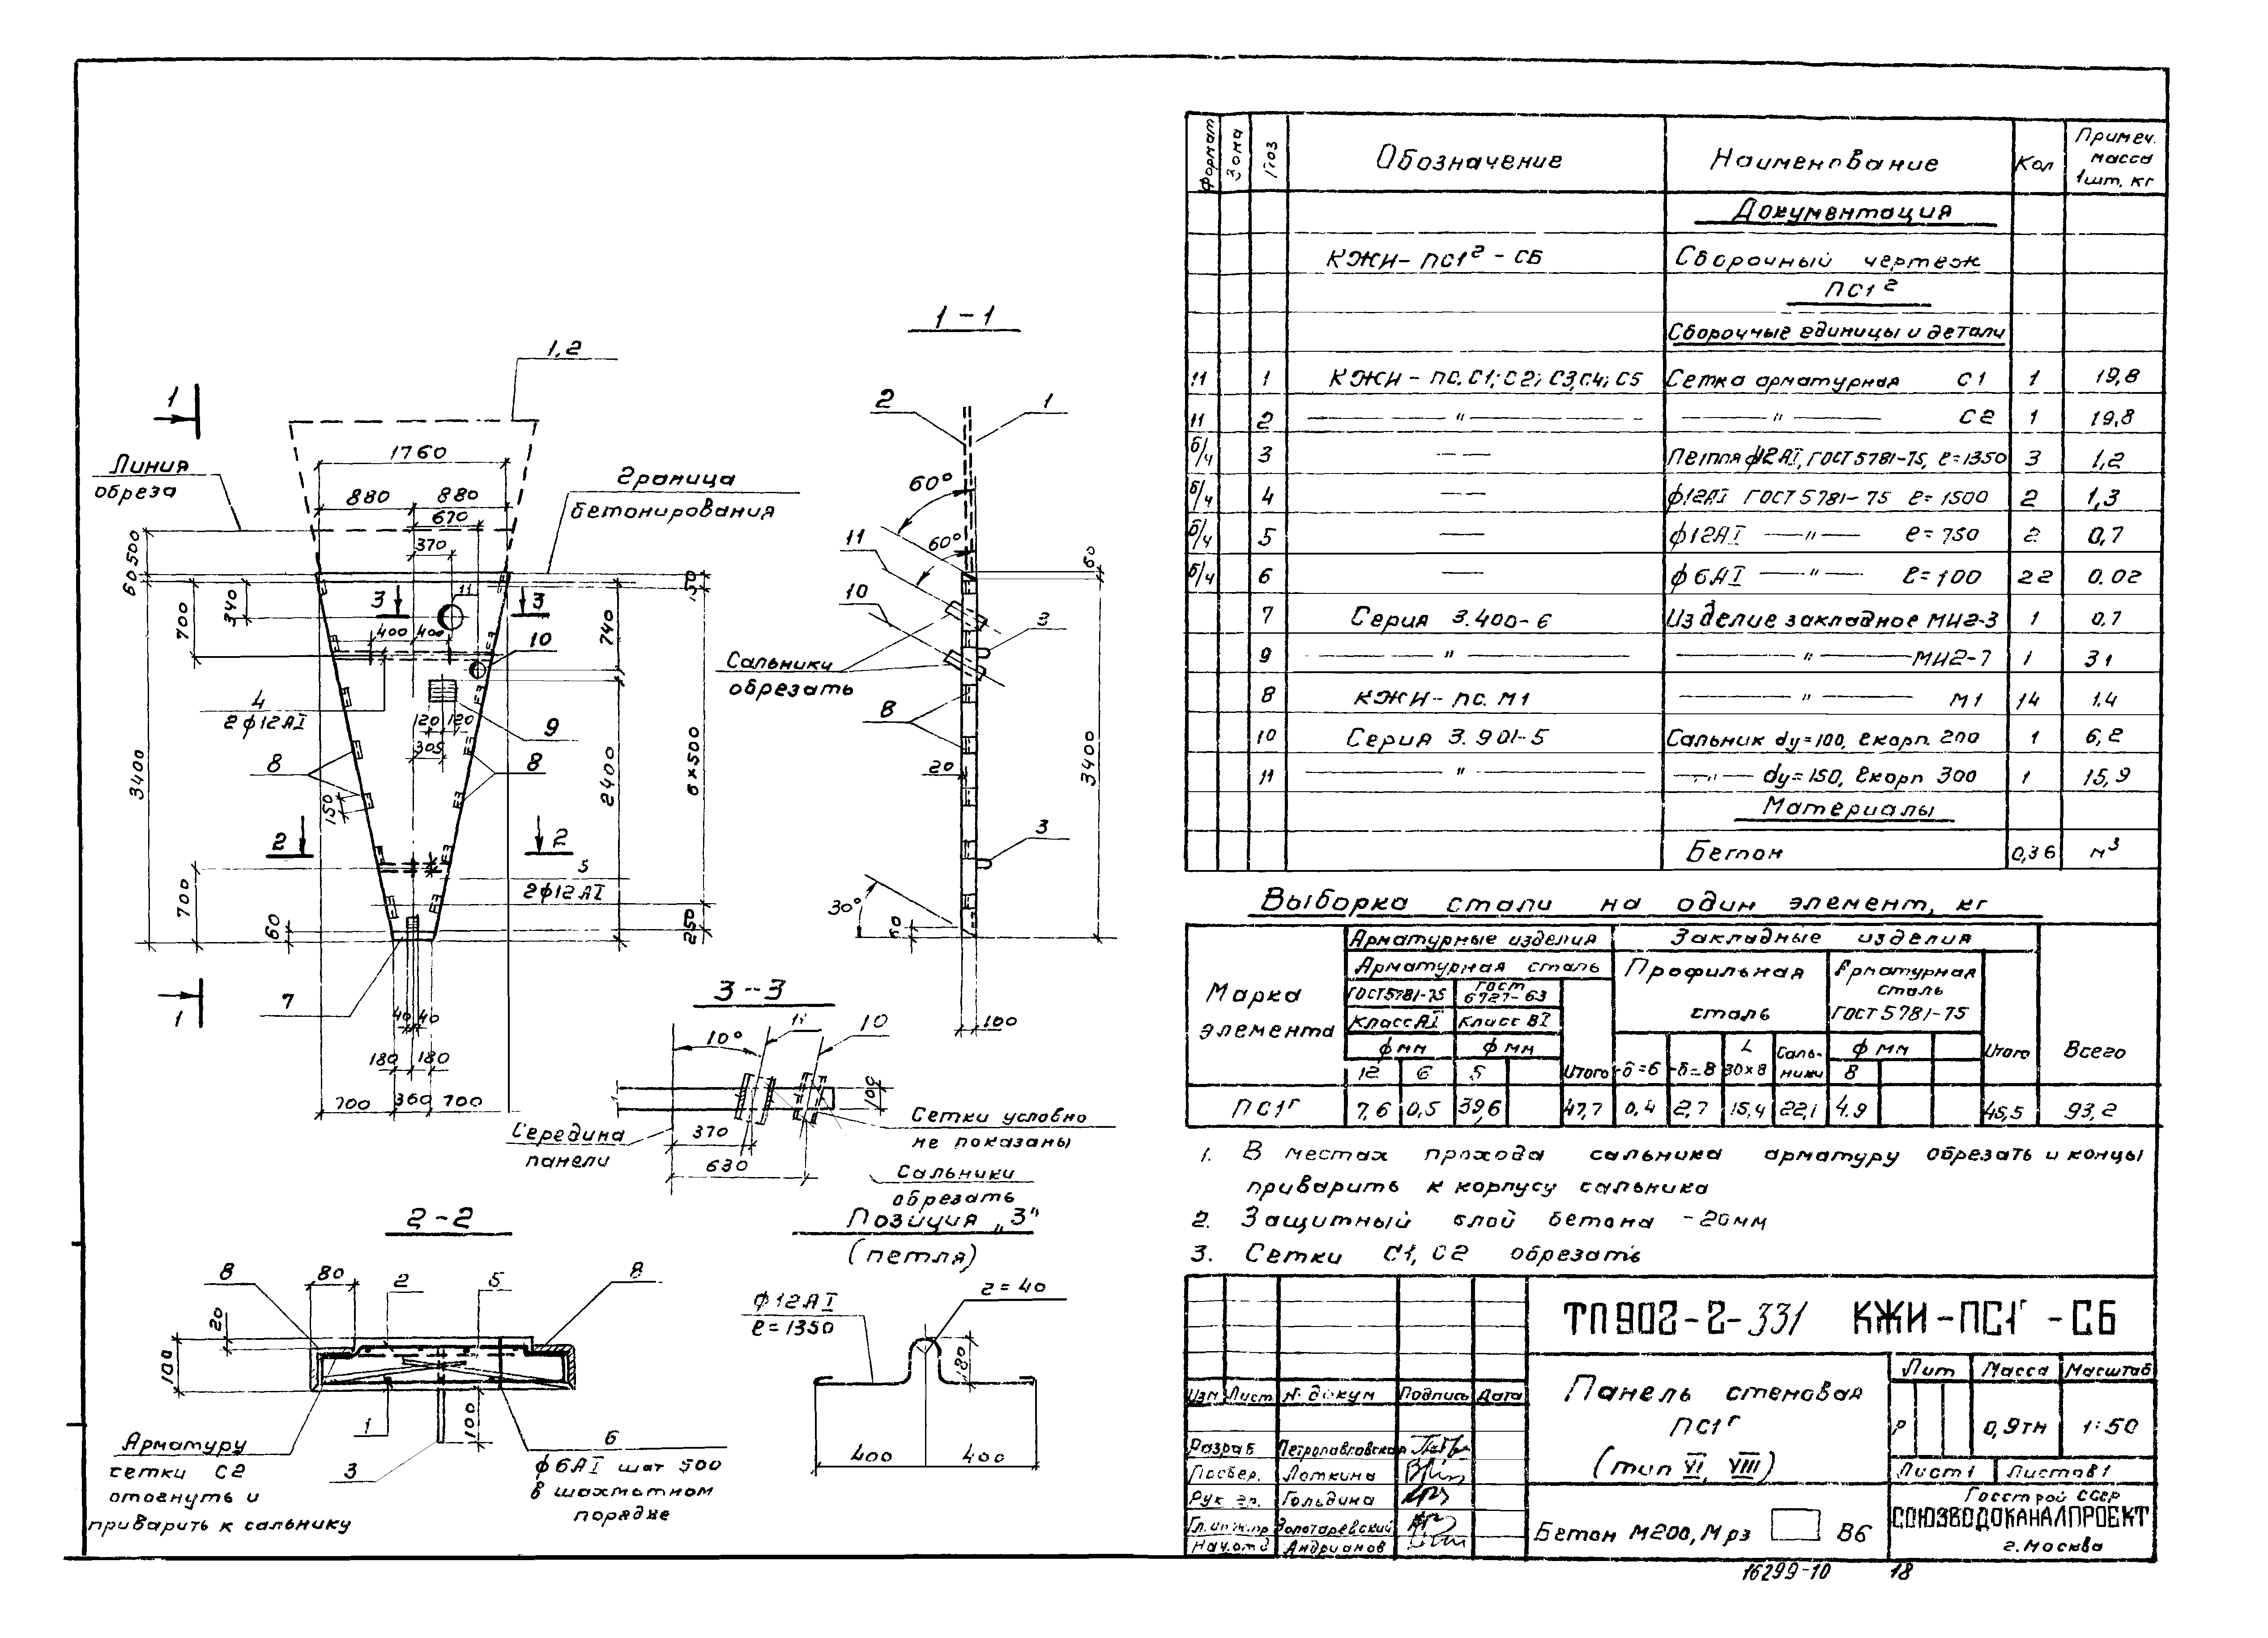 1-1
1,2
1
Линия
обреза
1760
880 880
670
370
Граница
бетонирования
2 1
60°
60°
11
10
3
Сальники
обрезать
8
20
3
30°
60
100
60
3400
500
60
700
340
3400
700
60
3 3
11
400 400
10
4
2ф12АI
120 120
305
9
8 8
150
2 2
5
2ф12АI
740
2400
150
6×500
250
7
1
40 40
180 180
700 360 700
3-3
10°
11 10
100
370
630
Середина
панели
Сетки условно
не показаны
Сальники
обрезать
2-2
8 80 2 5 8
20
100
1
3
100
6
ф6АI шаг 500
в шахматном
порядке
Арматуру
сетки С2
отогнуть и
приварить к сальнику
Позиция „3"
(петля)
ф12АI
ℓ=1350
r=40
80
400 400
Формат Зона Поз Обозначение Наименование Кол Примеч. масса 1шт, кг
Документация
КЖИ-ПС1г-СБ Сборочный чертеж
ПС1г
Сборочные единицы и детали
11 1 КЖИ-ПС.С1;С2;С3,С4;С5 Сетка арматурная С1 1 19,8
11 2 — " — — " — С2 1 19,8
б/ч 3 — — Петля ф12АI, ГОСТ 5781-75, ℓ=1350 3 1,2
б/ч 4 — — ф12АI ГОСТ 5781-75 ℓ=1500 2 1,3
б/ч 5 — ф12АI — " — ℓ=750 2 0,7
б/ч 6 — ф6АI — " — ℓ=100 22 0.02
7 Серия 3.400-6 Изделие закладное МИ2-3 1 0.7
9 — " — — " — МИ2-7 1 31
8 КЖИ-ПС.М1 — " — М1 14 1.4
10 Серия 3.901-5 Сальник dy=100, ℓкорп. 200 1 6,2
11 — " — — " — dy=150, ℓкорп 300 1 15,9
Материалы
Бетон 0,36 м³
Выборка стали на один элемент, кг
Марка элемента Арматурные изделия Закладные изделия Всего
Арматурная сталь Профильная сталь Арматурная сталь ГОСТ 5781-75 Итого
ГОСТ 5781-75 ГОСТ 6727-63
Класс АI Класс ВI Итого
ф мм ф мм -δ=6 -δ=8 L 30×8 Сальники ф мм
12 6 5 8
ПС1г 7,6 0,5 39,6 47,7 0,4 2,7 15,4 22,1 4.9 45,5 93,2
1. В местах прохода сальника арматуру обрезать и концы
приварить к корпусу сальника
2. Защитный слой бетона -20мм
3. Сетки С1, С2 обрезать
ТП902-2-331 КЖИ-ПС1г-СБ
Панель стеновая
ПС1г
(тип VI, VIII)
Лит Масса Масштаб
Р 0,9тн 1:50
Лист 1 Листов 1
Изм Лист № докум Подпись Дата
Разраб Петропавловская
Провер. Лоткина
Рук гр. Гольдина
Гл.инж.пр Золотаревский
Нач.отд Андрианов
Бетон М200, Мрз В6
Госстрой СССР
СОЮЗВОДОКАНАЛПРОЕКТ
г.Москва
16299-10 18